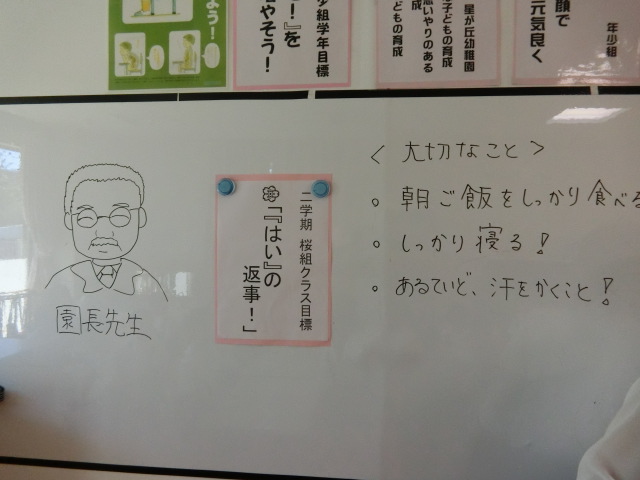 よう！
！』を
やそう！
少組学年目標
星が丘幼稚園
子どもの育成
思いやりのある
どもの育成
顔で
元気良く
年少組
＜ 大切なこと ＞
。朝ご飯をしっかり食べる
。しっかり寝る！
。あるていど、汗をかくこと！
二学期 桜組クラス目標
「『はい』の
返事！」
園長先生